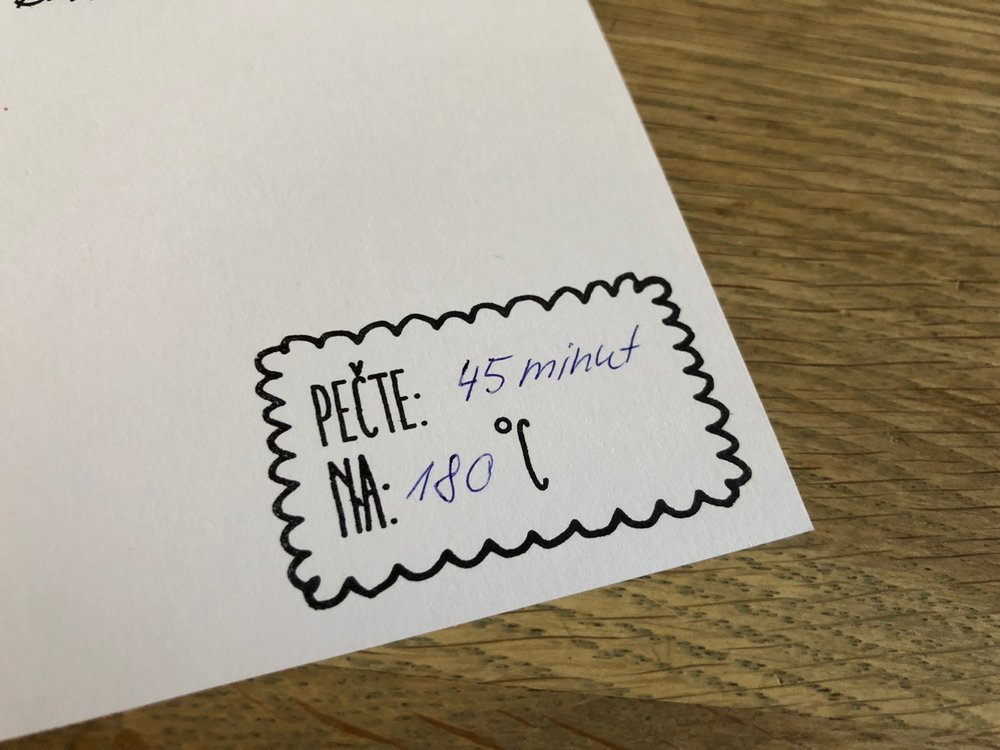 PEČTE: 45 minut
NA: 180 °C